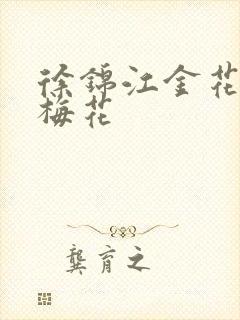 徐锦江金花
梅花
龚育之